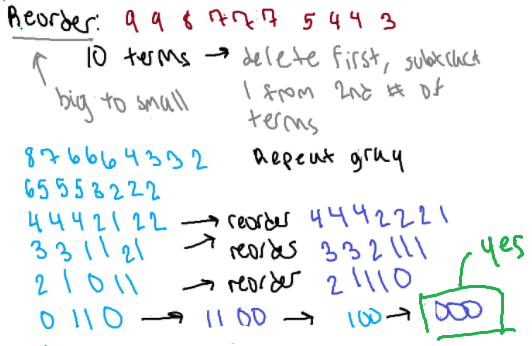 Reorder: 9 9 8 7 7 7 5 4 4 3
10 terms → delete first, subtract
big to small
1 from 2nd # of
terms
8 7 6 6 6 4 3 3 2 Repeat gray
6 5 5 5 3 2 2 2
4 4 4 2 1 2 2 → reorder 4 4 4 2 2 2 1
3 3 1 1 2 1 → reorder 3 3 2 1 1 1
2 1 0 1 1 → reorder 2 1 1 1 0
0 1 1 0 → 1 1 0 0 → 1 0 0 → 0 0 0
yes